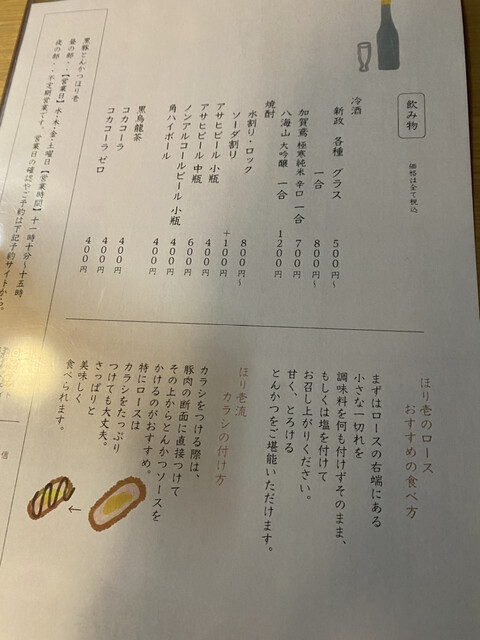 飲み物
価格は全て税込
冷酒
新政 各種 グラス 500円~
一合 800円~
加賀鳶 極寒純米 辛口 一合 700円
八海山 大吟醸 一合 1200円
焼酎
水割り・ロック 800円~
ソーダ割り +100円
アサヒビール 小瓶 400円
アサヒビール 中瓶 600円
ノンアルコールビール 小瓶 400円
角ハイボール 400円
黒烏龍茶 400円
コカコーラ 400円
コカコーラ ゼロ 400円
黒豚とんかつほり壱
昼の部・・【営業日】水・木・金・土曜日【営業時間】十一時十分~十五時
夜の部・・不定期営業です。営業日の確認やご予約は下記予約サイトから。
ほり壱のロース
おすすめの食べ方
まずはロースの右端にある
小さな一切れを
調味料を何も付けずそのまま、
もしくは塩を付けて
お召し上がりください。
甘く、とろける
とんかつをご堪能いただけます。
ほり壱流
カラシの付け方
カラシをつける際は、
豚肉の断面に直接つけて
その上からとんかつソースを
かけるのがおすすめ。
特にロースは
カラシをたっぷり
つけても大丈夫。
さっぱりと
美味しく
食べられます。